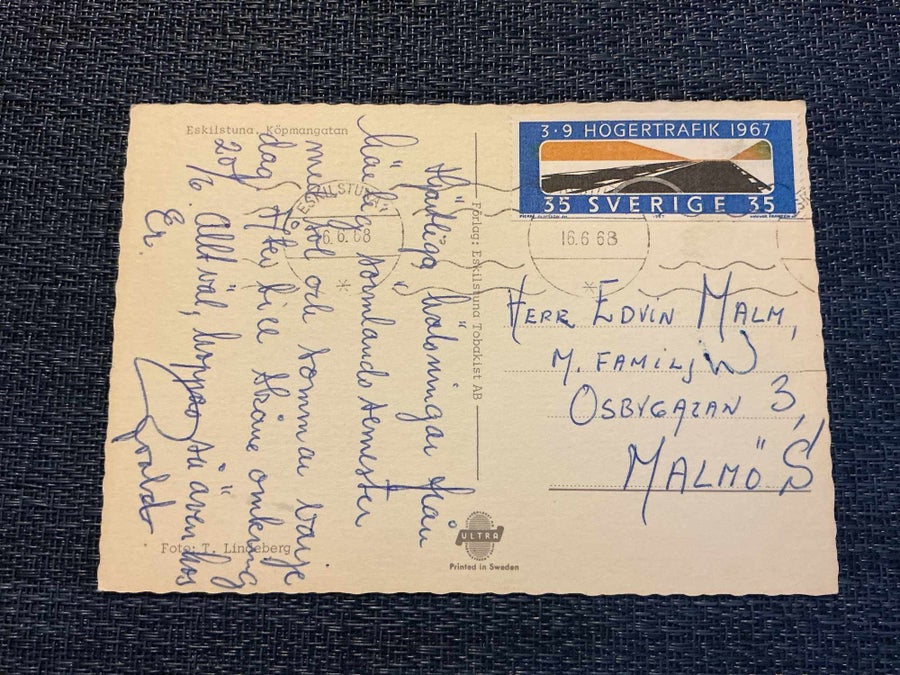 Eskilstuna. Köpmangatan
Hjärtliga hälsningar från
härlig sörmlandssemester
med sol och sommar varje
dag. Åter till Skåne omkring
20/6. Allt väl, hoppas så även hos
Er
Foto: T. Lindeberg
Förlag: Eskilstuna Tobakist AB
ULTRA
Printed in Sweden
3·9 HÖGERTRAFIK 1967
35 SVERIGE 35
ESKILSTUNA
16.6.68
16.6.68
HERR EDVIN MALM,
M. FAMILJ
OSBYGATAN 3,
MALMÖ S